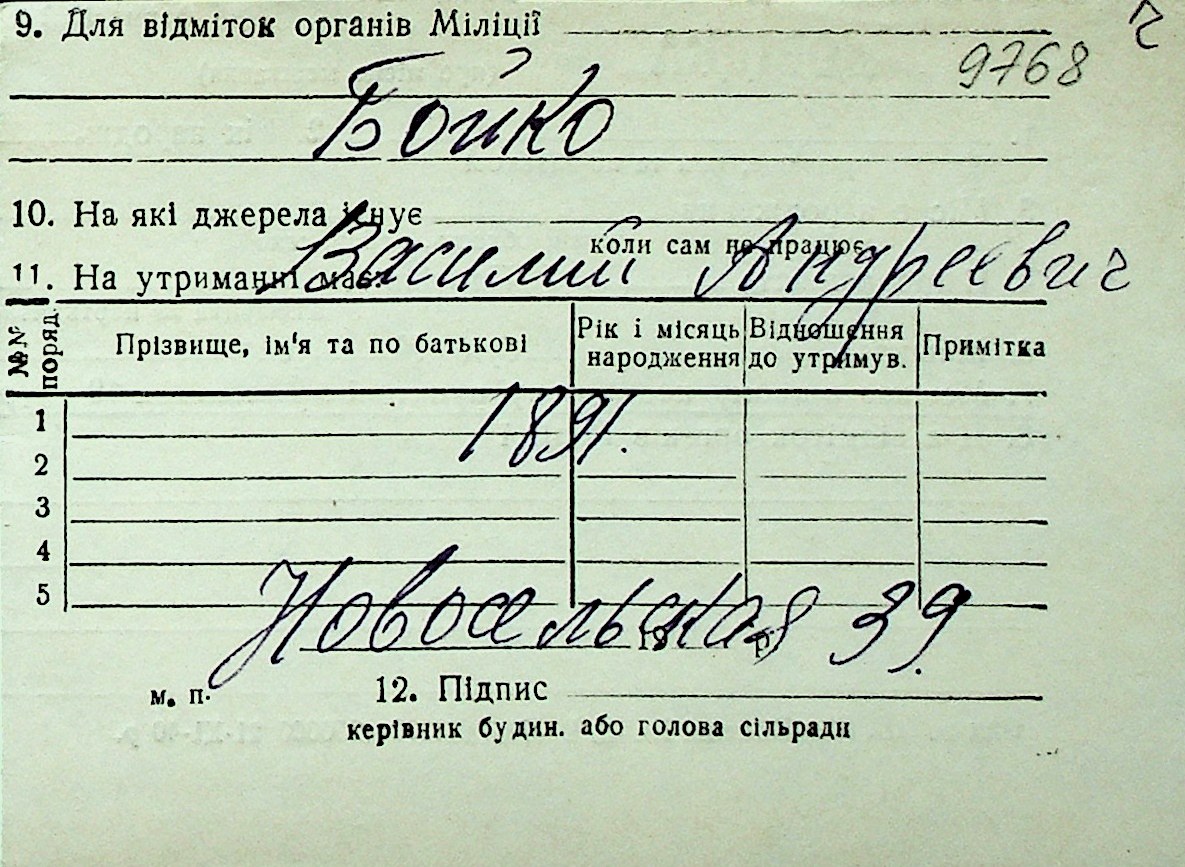 9. Для відміток органів Міліції
9768
Бойко
10. На які джерела існує
коли сам не працює
Василий Андреевич
11. На утриманні має:
№№ поряд.
Прізвище, ім'я та по батькові
Рік і місяць народження
Відношення до утримув.
Примітка
1
1891.
2
3
4
5
Новосельская 39.
19 р.
м. п.
12. Підпис
керівник будин. або голова сільради